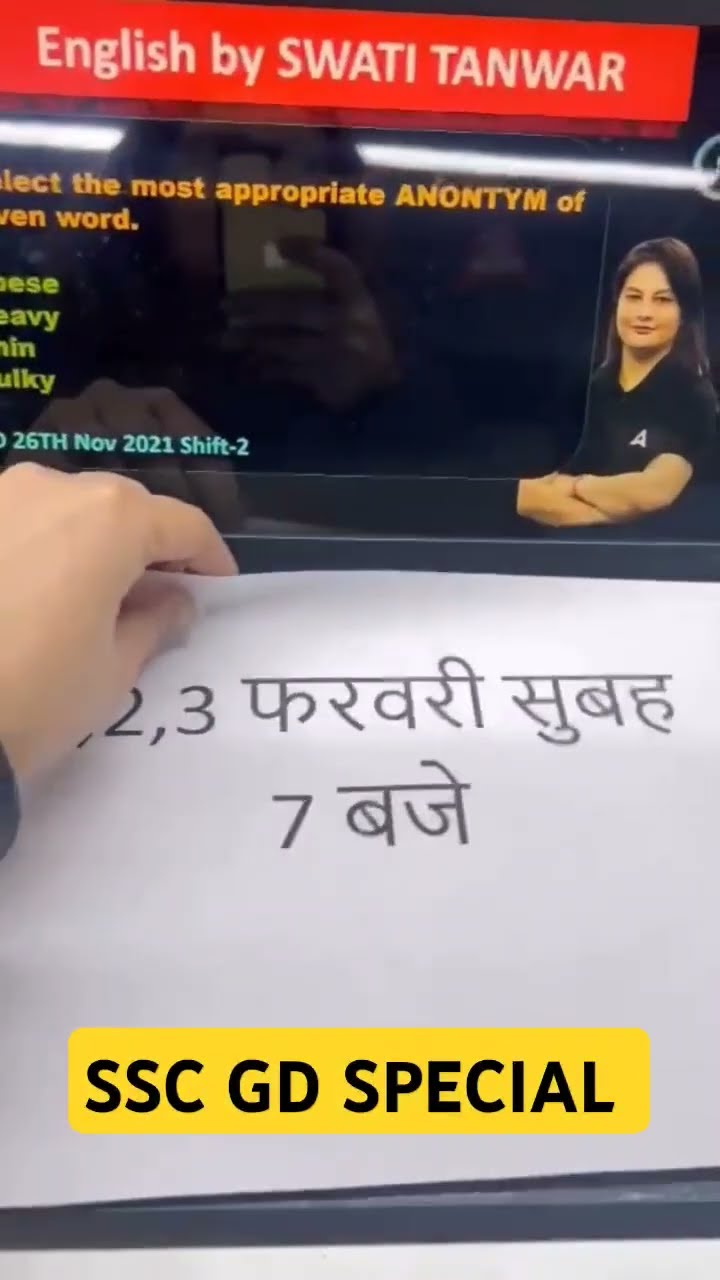 English by SWATI TANWAR
the most appropriate ANONTYM of
word.
26TH Nov 2021 Shift-2
,2,3 फरवरी सुबह
7 बजे
SSC GD SPECIAL